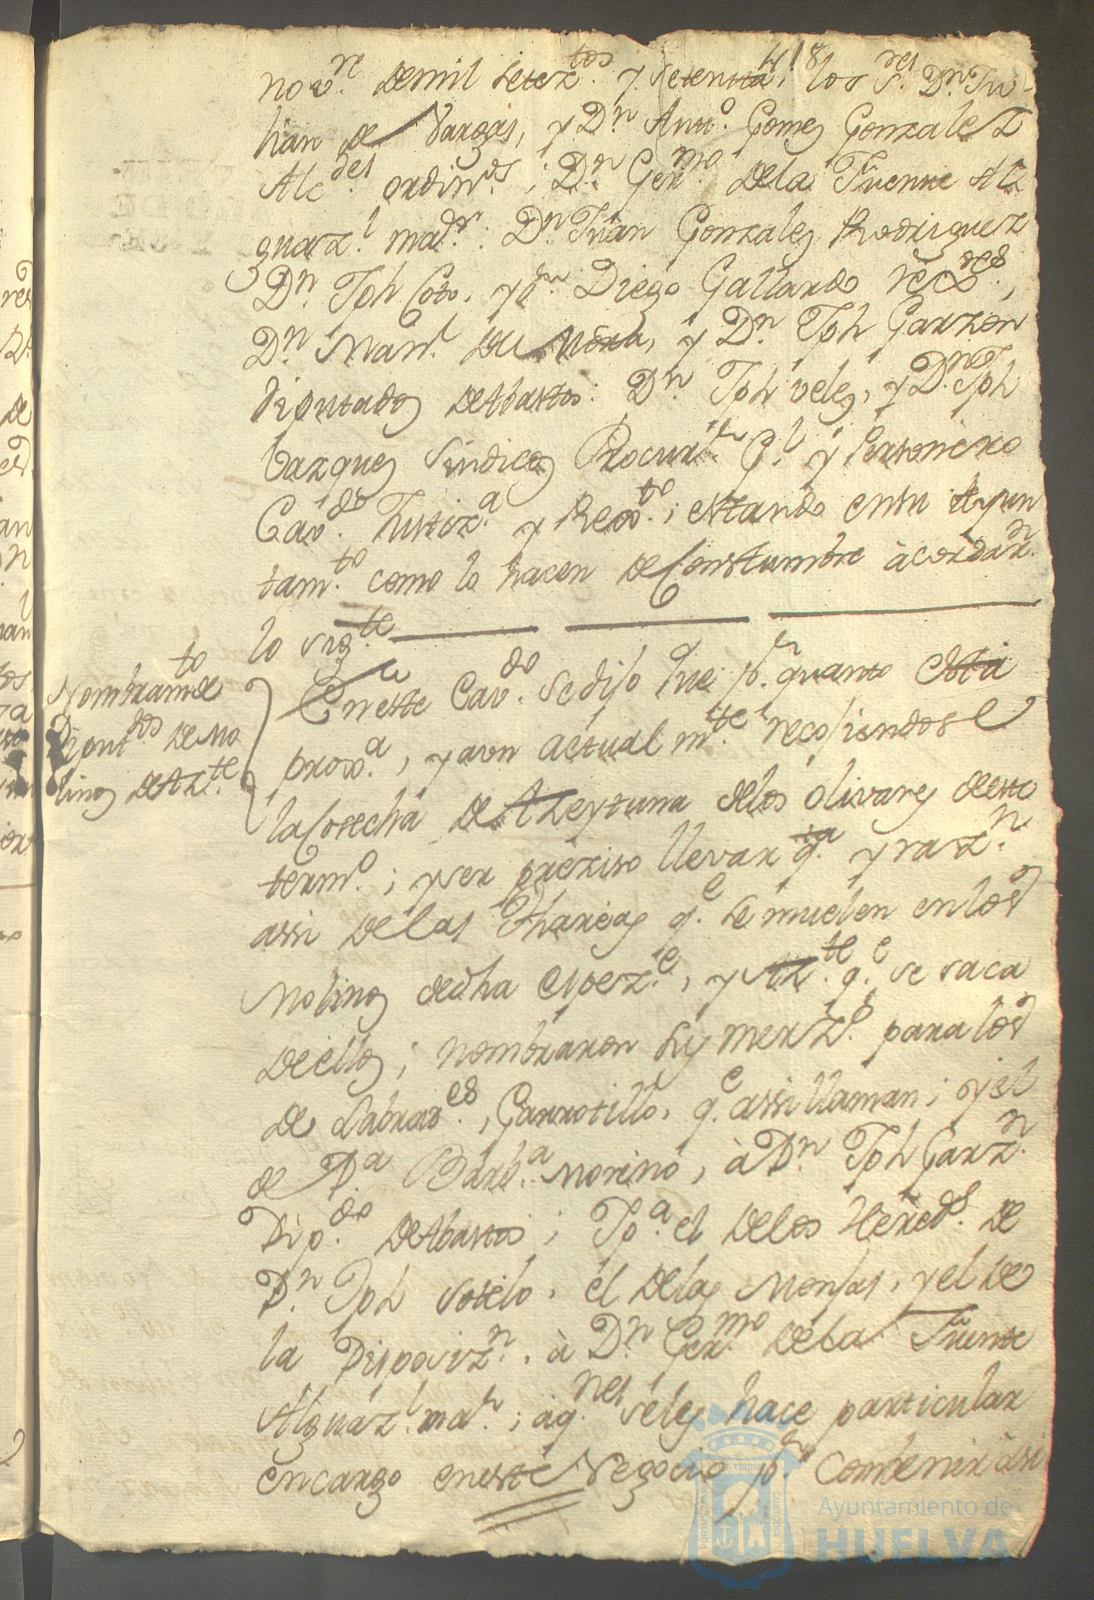 418
nov.re de mil setez.tos y setenta; los S.res D.n Ju-
lian de Vargas, y D.n Antt.o Gomez Gonzalez
Alc.des ordin.s; D.n Ger.mo de la Fuente Al-
guaz.l ma.r: D.n Juan Gonzalez Rodriguez
D.n Jph Coto, y d.n Diego Gallardo rex.res,
D.n Man.l de Mora, y D.n Jph Garzon
Diputados de Abastos: D.n Jph velez, y D.n Jph
Bazquez Sindicos Procur.r G.l y Personero
Cav.do Justiz.a y Rex.to; estando en su Ayun
tam.to como lo hacen de Constumbre à cordar.n
lo sig.te
Nombram.to de
Diput.dos de Mo
linos de Az.te
En este Cav.do se dijo que p.r quanto està
prox.a, y aun actual m.te recojiendose
la Cosecha de Azeytuna de los olivares de este
term.o; y ser preziso llevar q.ta y raz.n
assi de las Thareas q.e se muelen en los
Molinos de dha espez.e, y Az.te q.e se saca
de ellos; nombraron Sus merz.s para los
de Labrad.es, Garrotillo, q.e assi llaman; y el
de D.a Barb.a Morino, à D.n Jph Garz.n
Dip.do de Abastos; Jp.a el de los Hered.s de
D.n Jph sotelo, el de las Monjas, y el de
la Disposiz.n, à D.n Ger.mo de la Fuente
Alguaz.l ma.r; à q.nes se les hace particular
encargo en este Negocio p.r combenir assi
Ayuntamiento de
HUELVA